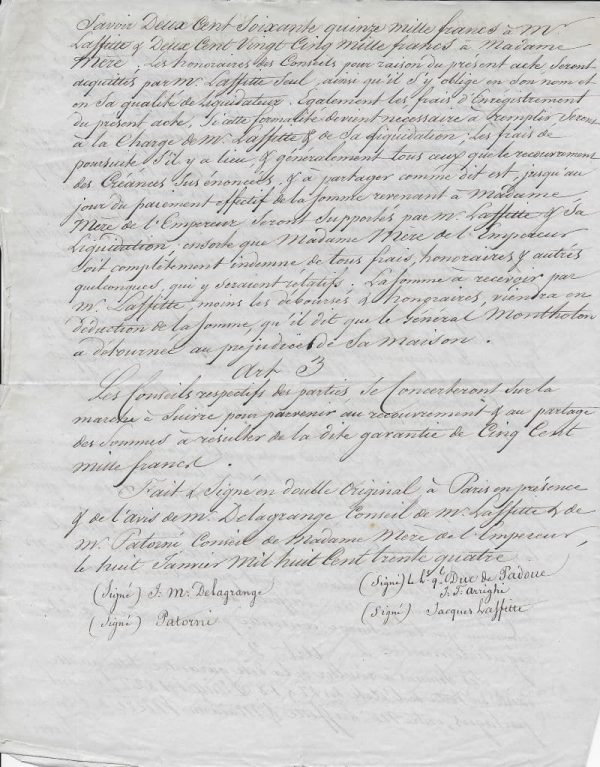 Savoir Deux Cent Soixante quinze mille francs à Mr
Laffitte & Deux Cent Vingt Cinq Mille francs à Madame
Mère. Les honoraires des Conseils pour raison du présent acte seront
acquittés par Mr. Laffitte Seul, ainsi qu'il s'y oblige en son nom et
en Sa qualité de Liquidateur. Egalement les frais d'Enregistrement
du présent acte, Si cette formalité devient nécessaire à remplir seront
à la Charge de Mr. Laffitte & de Sa Liquidation; Les frais de
poursuite S'il y a lieu, & généralement tous ceux que le recouvrement
des Créances Susénoncées, & à partager comme dit est, jusqu'au
jour du parement effectif de la Somme revenant à Madame
Mère de l'Empereur seront Supportés par Mr. Laffitte & Sa
Liquidation; ensorte que Madame Mère de l'Empereur
soit complètement indemne de tous frais, honoraires & autres
quelconques, qui y seraient rélatifs. La Somme à recevoir par
Mr. Laffitte, moins les débourses & honoraires, viendra en
déduction de la Somme, qu'il dit que le Général Montholon
a détournée au préjudice de Sa Maison.
Art 3
Les Conseils respectifs des parties Se Concerteront Sur la
marche à Suivre pour parvenir au recouvrement & au partage
des Sommes à résulter de la dite garantie de Cinq Cent
mille francs.
Fait & Signé en double Original, à Paris en présence
& de l'avis de Mr. Delagrange Conseil de Mr. Laffitte & de
Mr. Patorni Conseil de Madame Mère de l'Empereur,
le huit Janvier Mil huit Cent trente quatre.
(Signé) J. M. Delagrange (Signé) Duc de Padoue
J. T. Arrighi
(Signé) Patorni (Signé) Jacques Laffitte